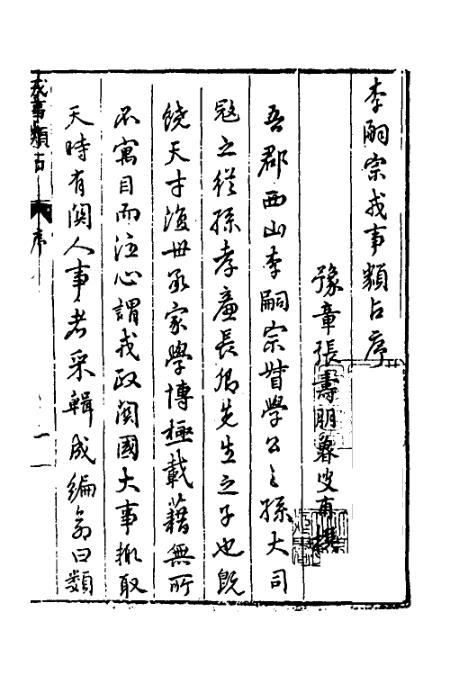 李嗣宗戎事類占序
豫章張壽朋魯叟甫撰
吾郡西山李嗣宗督學公之孫大司
冦之從孫孝廉長卿先生之子也既
饒天才復世承家學博極載藉無所
不寓目而注心謂戎政関國大事撫取
天時有関人事者采輯成編命曰類
戎事類占
序
一